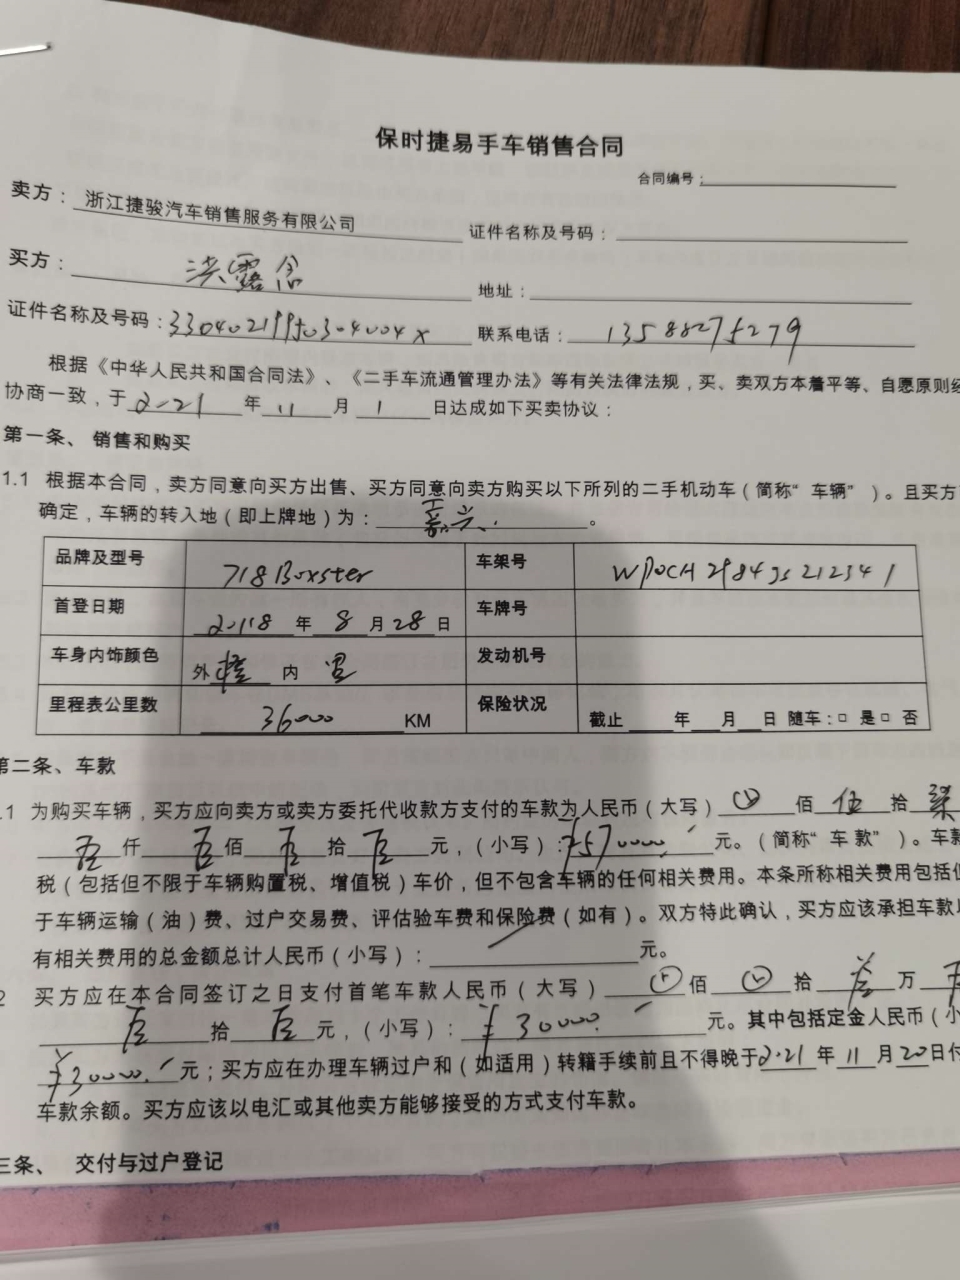 保时捷易手车销售合同
合同编号：
卖方： 浙江捷骏汽车销售服务有限公司 证件名称及号码：
买方： 洪露含 地址：
证件名称及号码： 联系电话： 13588275279
根据《中华人民共和国合同法》、《二手车流通管理办法》等有关法律法规，买、卖双方本着平等、自愿原则经
协商一致，于 2021 年 11 月 1 日达成如下买卖协议：
第一条、 销售和购买
1.1 根据本合同，卖方同意向买方出售、买方同意向卖方购买以下所列的二手机动车（简称“车辆”）。且买方
确定，车辆的转入地（即上牌地）为： 嘉兴 。
品牌及型号 718 Boxster 车架号
首登日期 2018 年 8 月 28 日 车牌号
车身内饰颜色 外 橙 内 黑 发动机号
里程表公里数 36000 KM 保险状况 截止 年 月 日 随车：□ 是□ 否
第二条、车款
.1 为购买车辆，买方应向卖方或卖方委托代收款方支付的车款为人民币（大写） 佰 伍 拾 柒
零 仟 零 佰 零 拾 零 元，（小写）：¥570000 元。（简称“车款”）。车款
税（包括但不限于车辆购置税、增值税）车价，但不包含车辆的任何相关费用。本条所称相关费用包括但
于车辆运输（油）费、过户交易费、评估验车费和保险费（如有）。双方特此确认，买方应该承担车款以
有相关费用的总金额总计人民币（小写）： 元。
2 买方应在本合同签订之日支付首笔车款人民币（大写） 佰 拾 叁 万 零
零 拾 零 元，（小写）： ¥30000. 元。其中包括定金人民币（小
¥30000. 元；买方应在办理车辆过户和（如适用）转籍手续前且不得晚于2021 年 11 月 20 日付
车款余额。买方应该以电汇或其他卖方能够接受的方式支付车款。
三条、 交付与过户登记